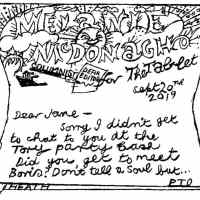 MELANIE
McDONAGHO
COLUMNIST
for The Tablet
Sept 20nd
2019
Dear Jane -
Sorry I didn't get
to chat to you at the
Tory party Bash
Did you get to meet
Boris? Don't tell a soul but...
HEATH
PTO